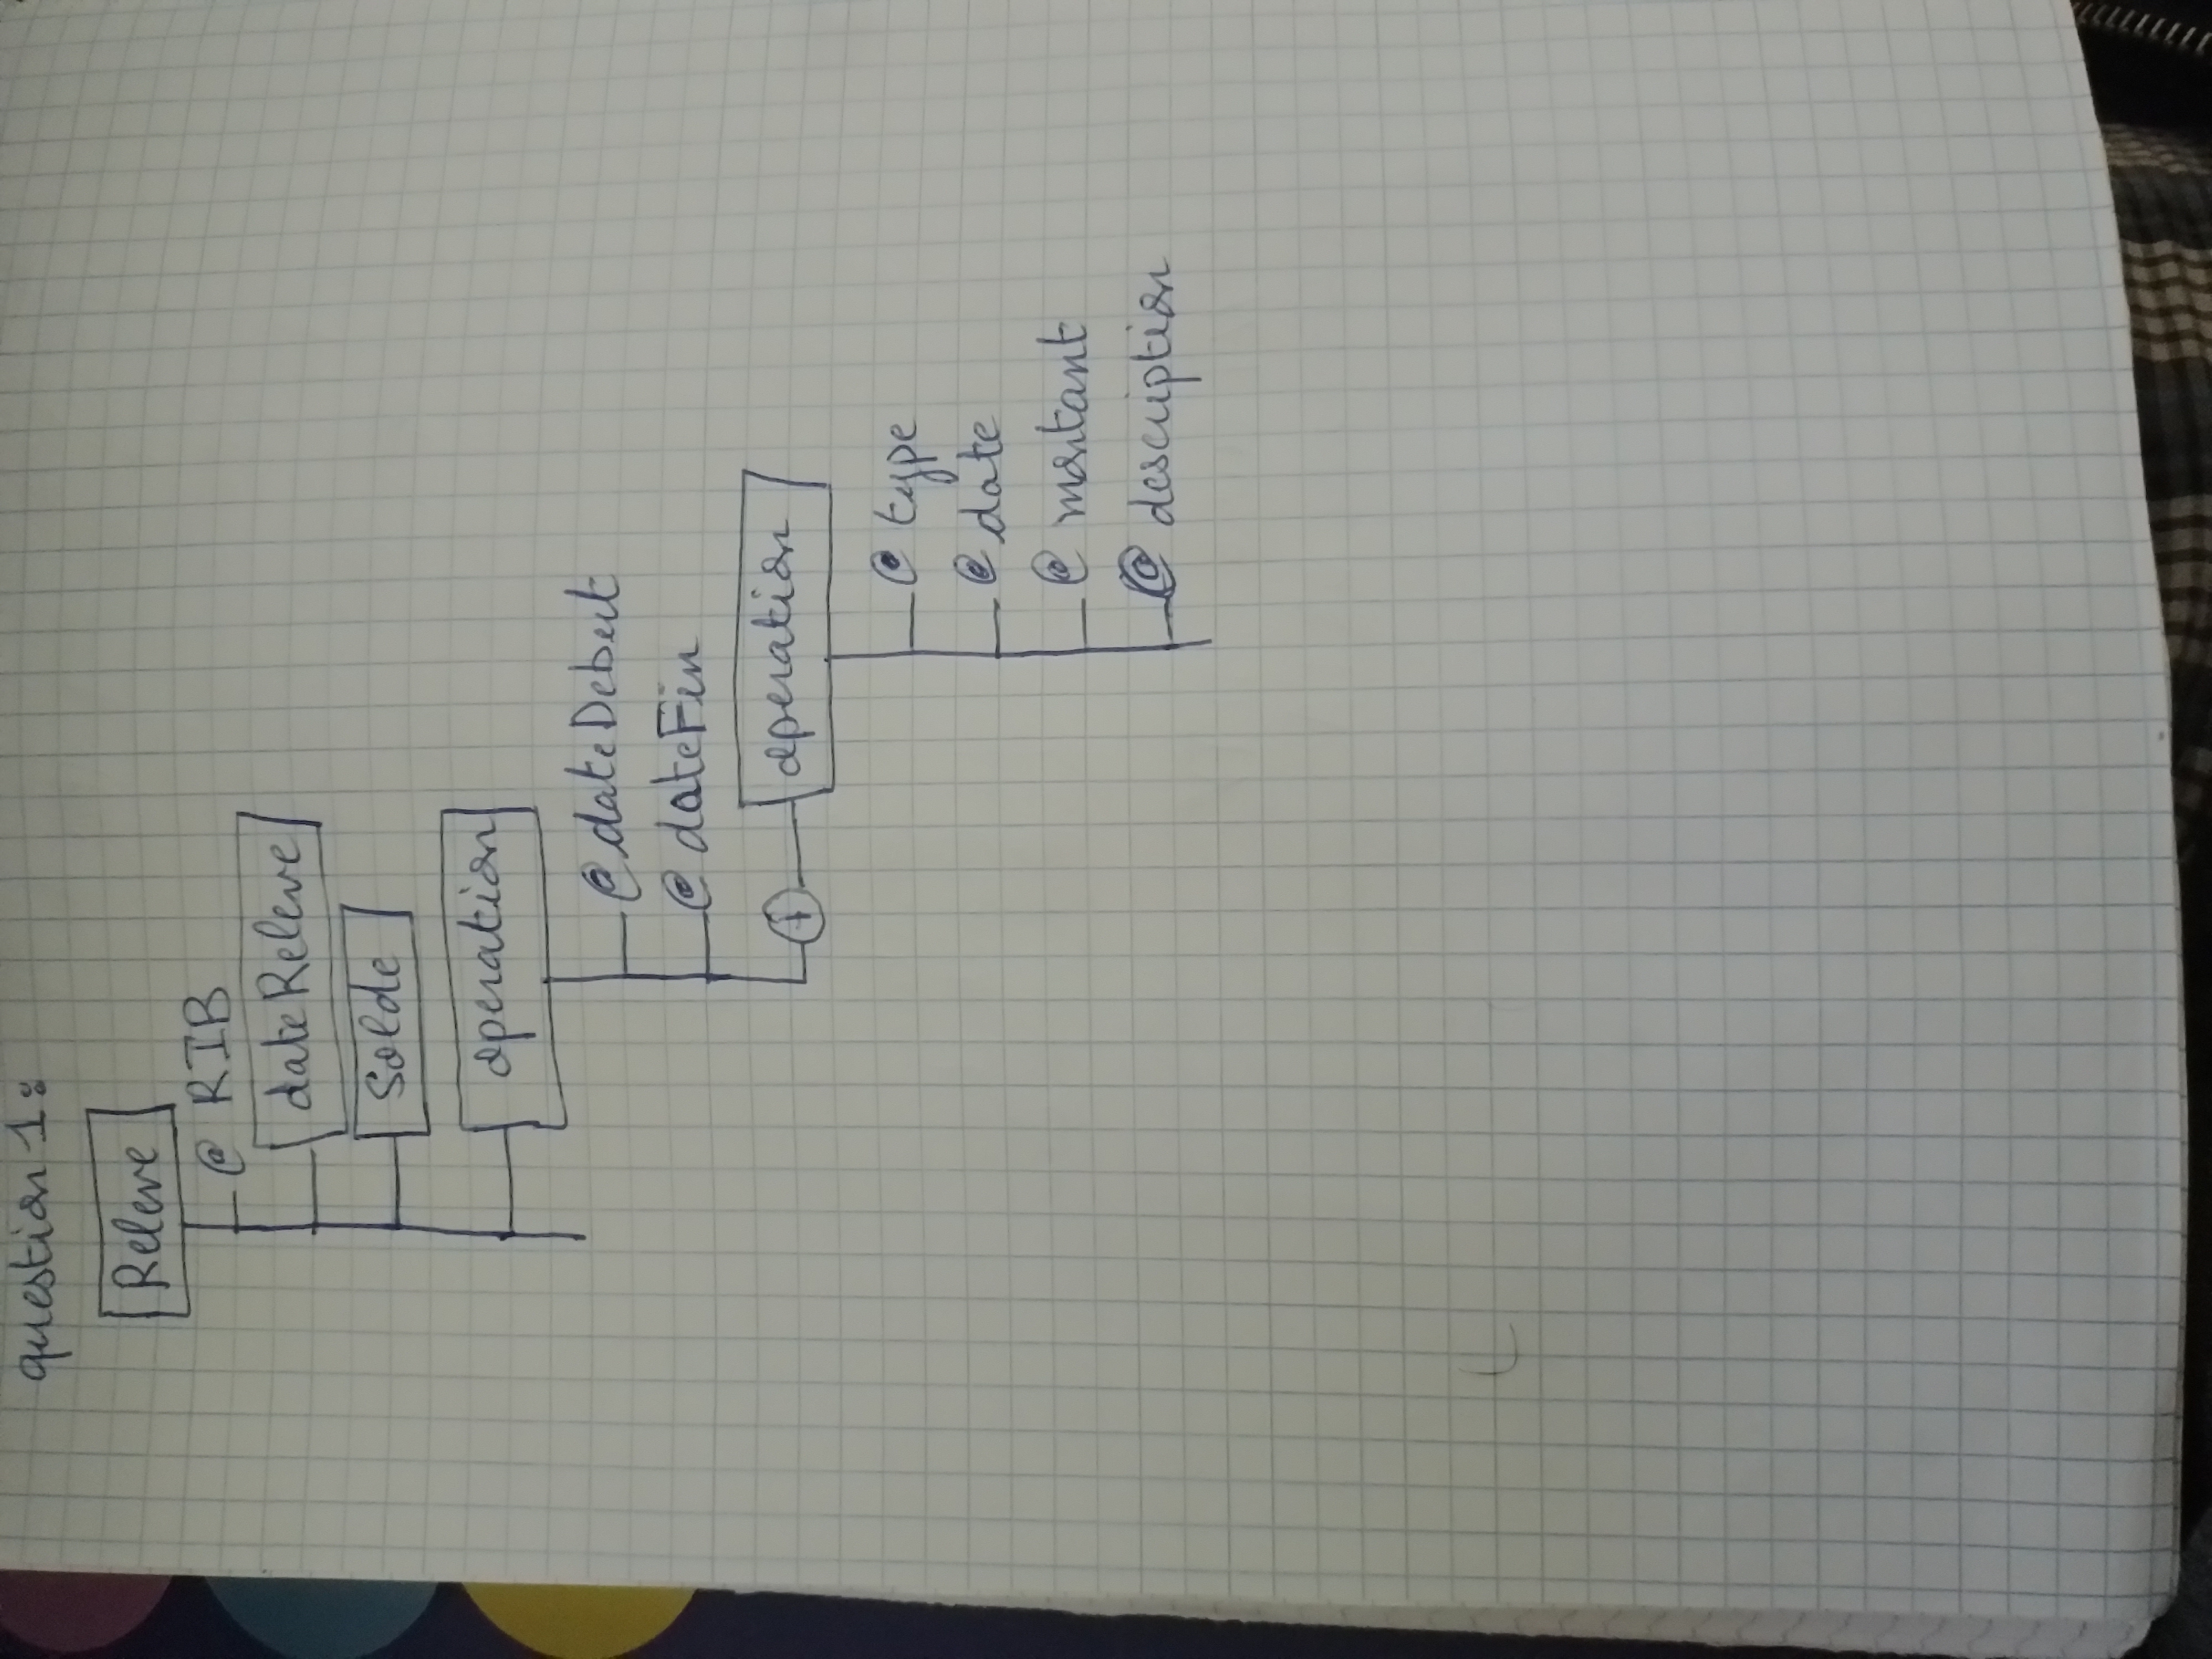 question 1:
Releve
@ RIB
dateReleve
Solde
operation
@ dateDebut
@ dateFin
+ operation
@ type
@ date
@ montant
@ description